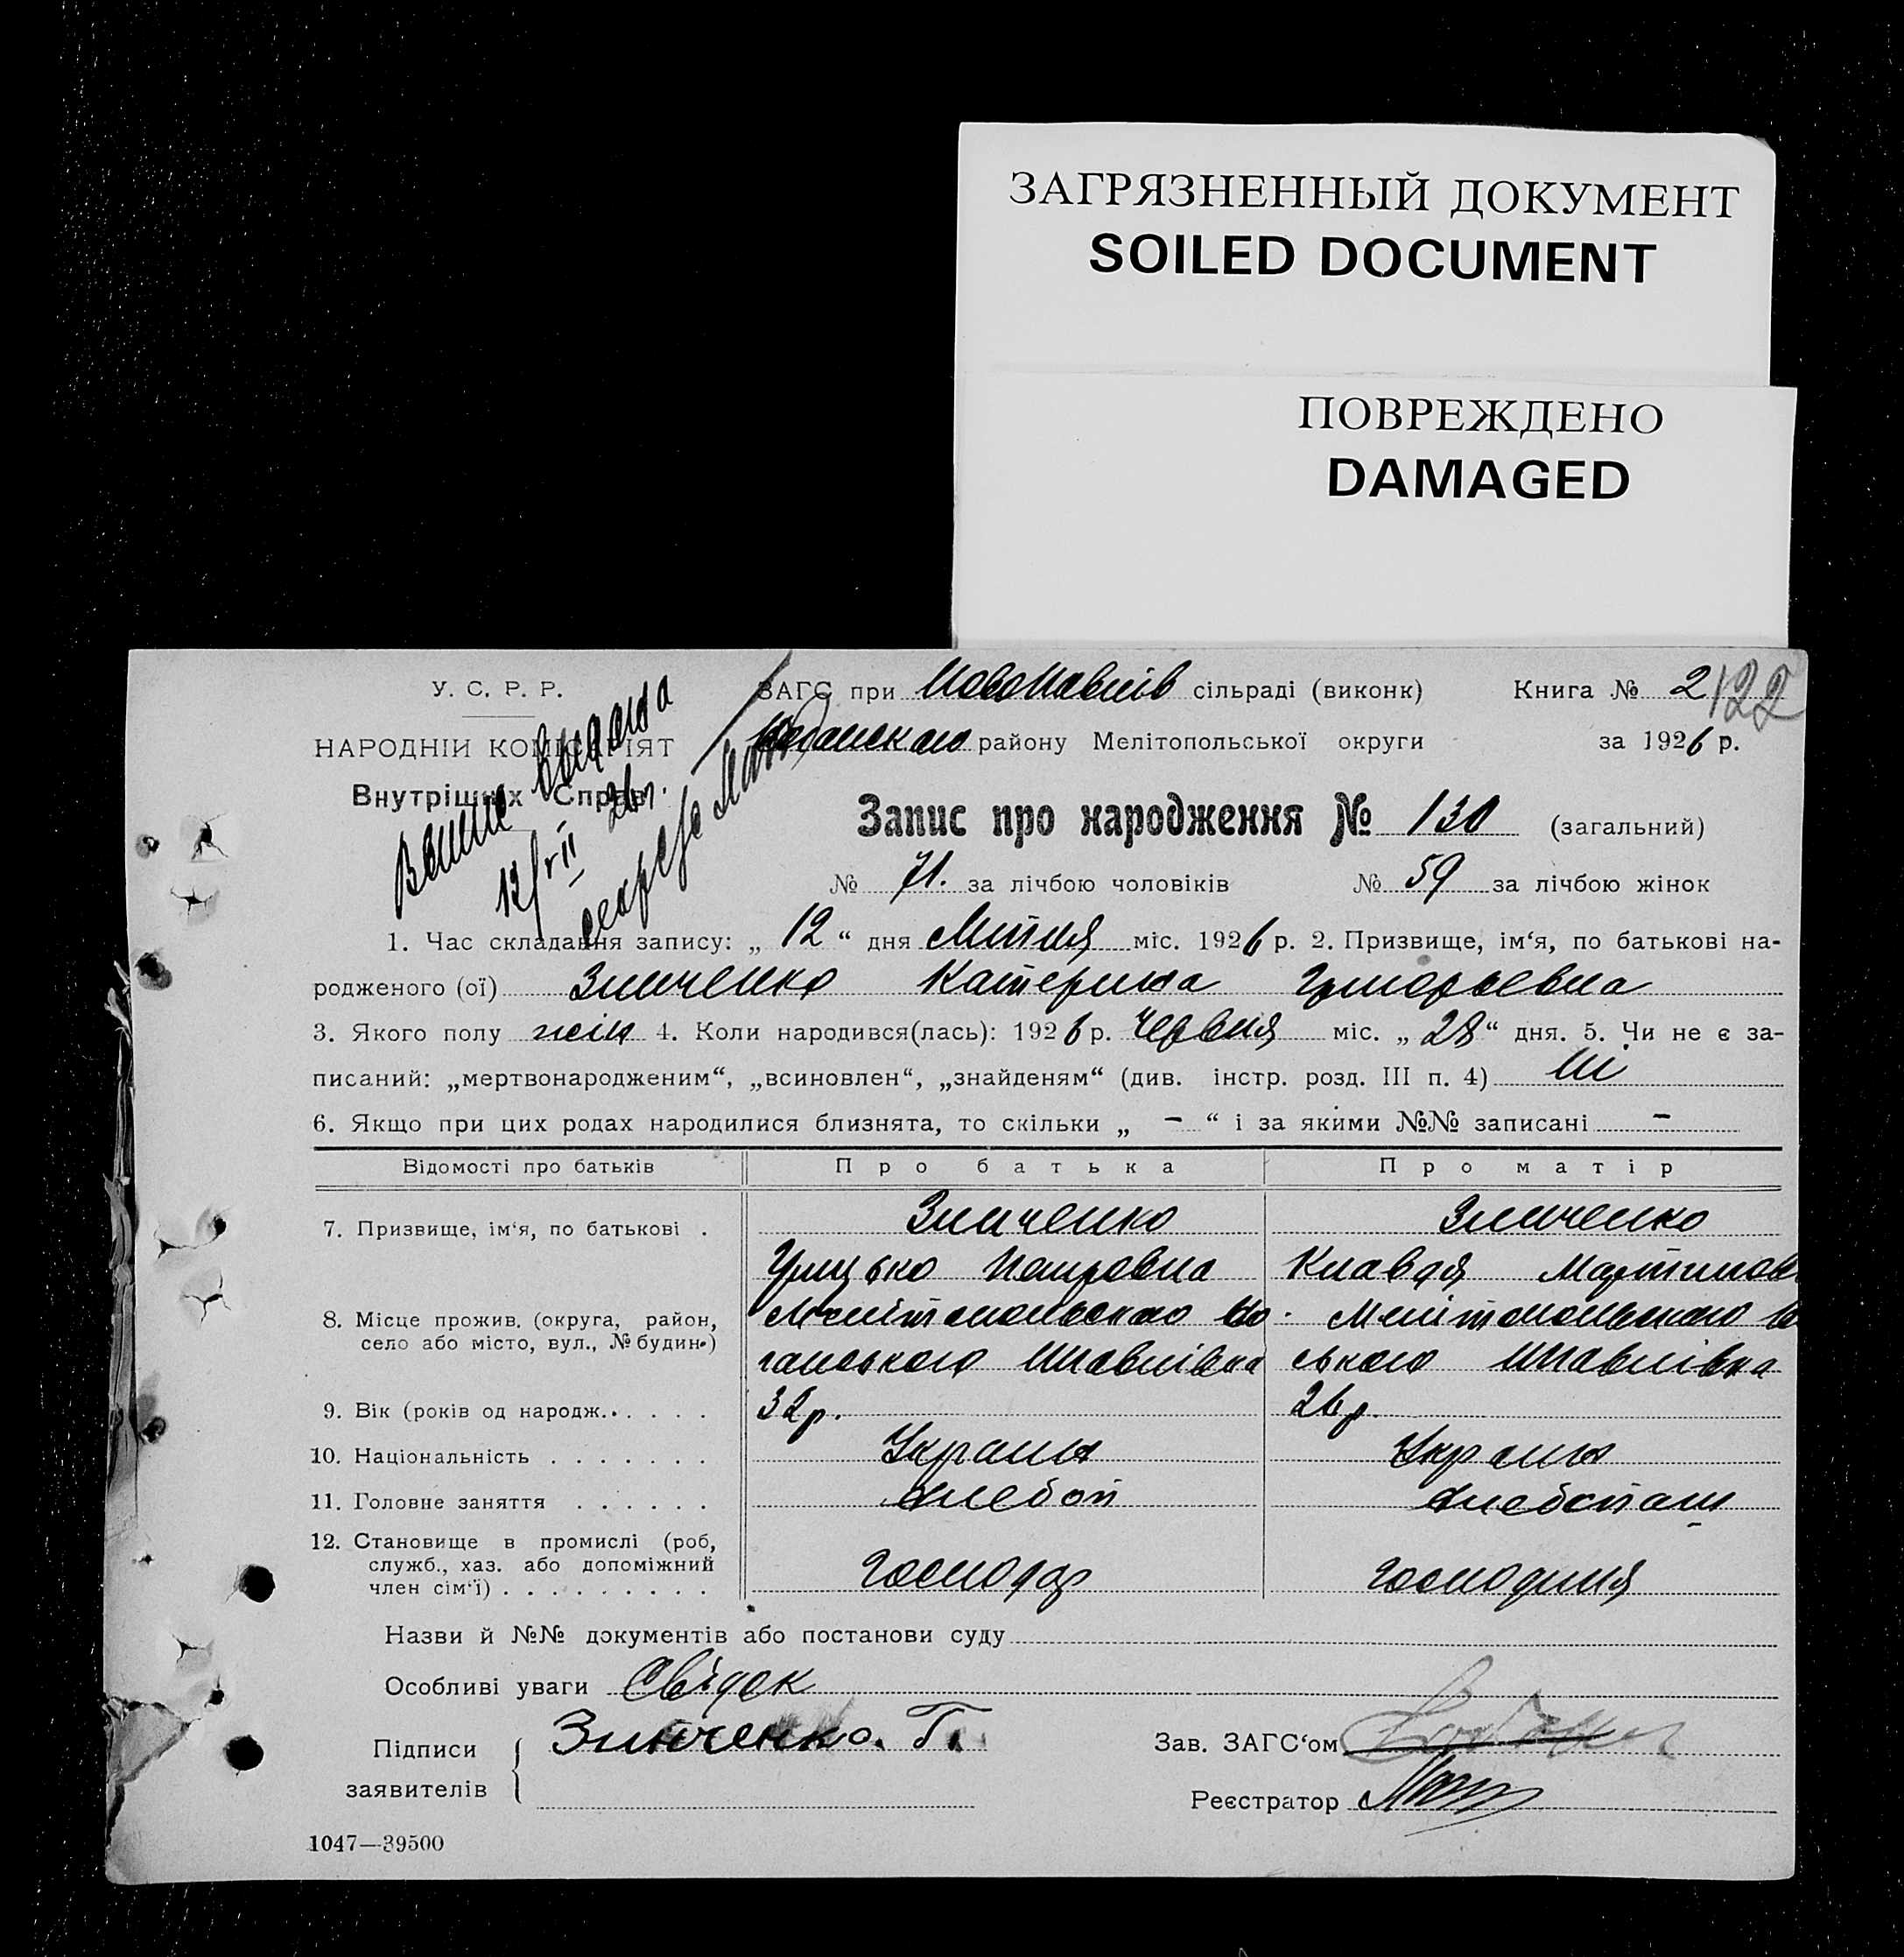 ЗАГРЯЗНЕННЫЙ ДОКУМЕНТ
SOILED DOCUMENT
ПОВРЕЖДЕНО
DAMAGED
У. С. Р. Р.
НАРОДНІЙ КОМІСАРІЯТ
Внутрішніх Справ
12/VII 26 г.
ЗАГС при Новопавлів сільраді (виконк) Книга № 2 122
району Мелітопольської округи за 1926 р.
Запис про народження № 130 (загальний)
№ 71. за лічбою чоловіків № 59 за лічбою жінок
1. Час складання запису: „ 12 “ дня Липня міс. 1926 р. 2. Призвище, ім‘я, по батькові на-
родженого (ої) Зинченко Катерина Григорьевна
3. Якого полу жін 4. Коли народився(лась): 1926 р. Червня міс. „ 28 “ дня. 5. Чи не є за-
писаний: „мертвонародженим“, „всиновлен“, „знайденям“ (див. інстр. розд. III п. 4) Ні
6. Якщо при цих родах народилися близнята, то скільки „ — “ і за якими №№ записані —
Відомості про батьків Про батька Про матір
7. Призвище, ім‘я, по батькові . Зинченко Зинченко
Грицько Петровна Клавдя Мартинов
8. Місце прожив. (округа, район, Мелітопольского Мелітопольского
село або місто, вул., № будин.) ганського Нпавлівка ського Нпавлівка
9. Вік (років од народж. . . . . . 32 р. 26 р.
10. Національність . . . . . . . Украин Украин
11. Головне заняття . . . . . . хлебоп хлебопаш
12. Становище в промислі (роб,
служб., хаз. або допоміжний
член сім‘ї) . . . . . . . . . Господар Господиня
Назви й №№ документів або постанови суду
Особливі уваги Свідок
Підписи Зинченко. Г. Зав. ЗАГС‘ом
заявителів
Реєстратор
1047—39500